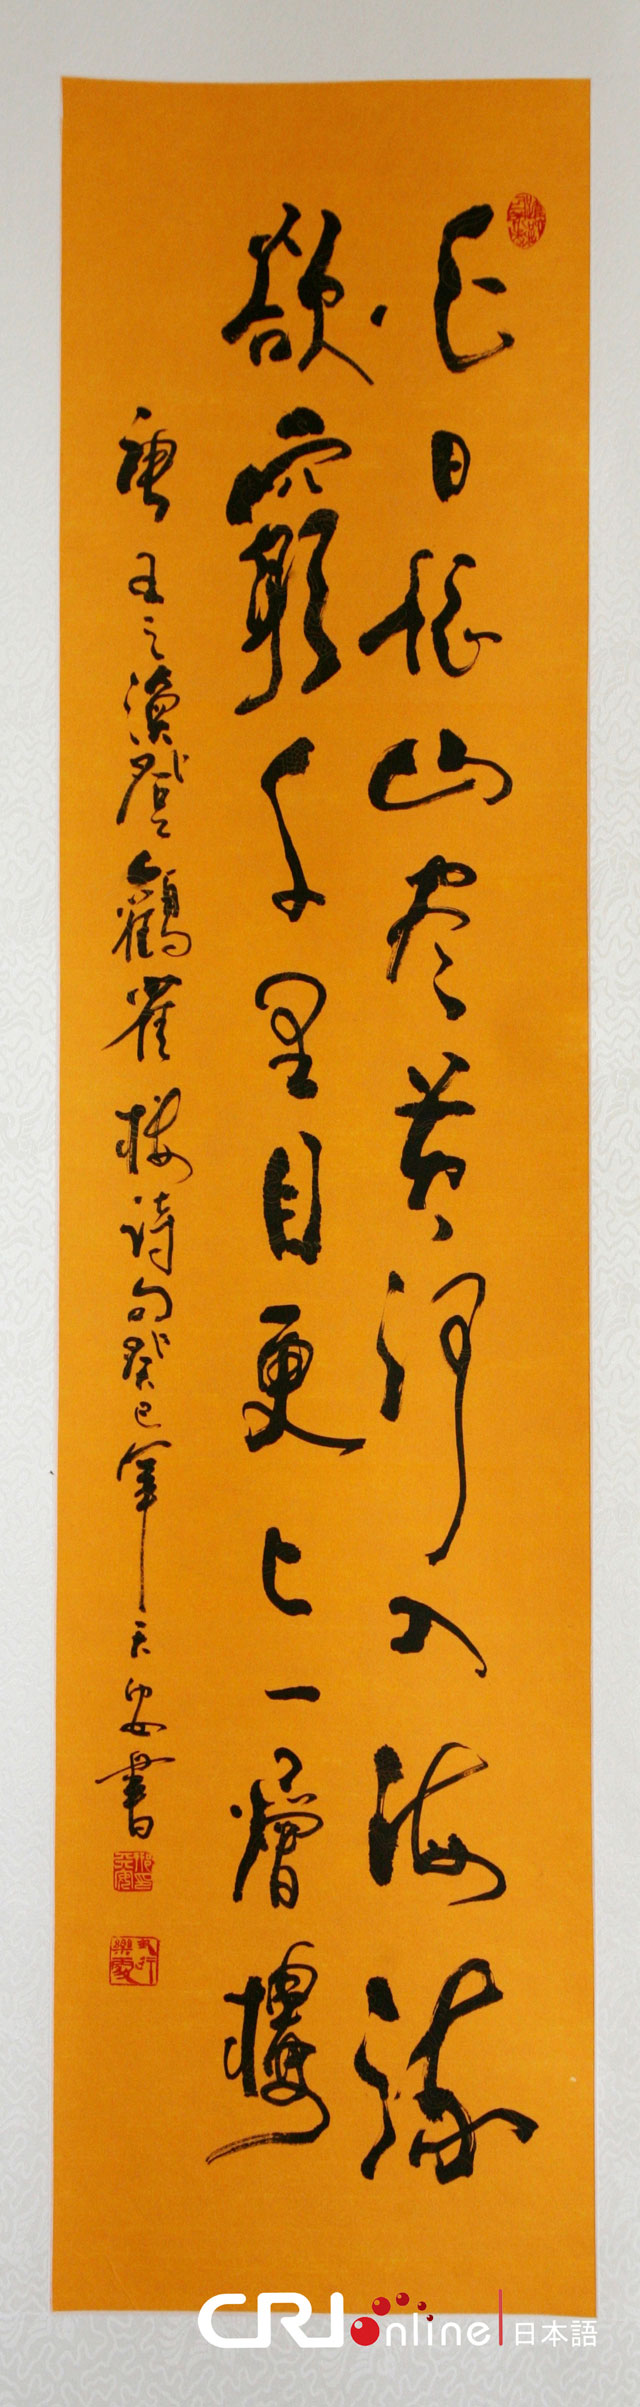 白日依山尽黄河入海流
欲窮千里目更上一層樓
唐王之渙登鸛雀楼诗句癸巳年天安書
CRIonline 日本語